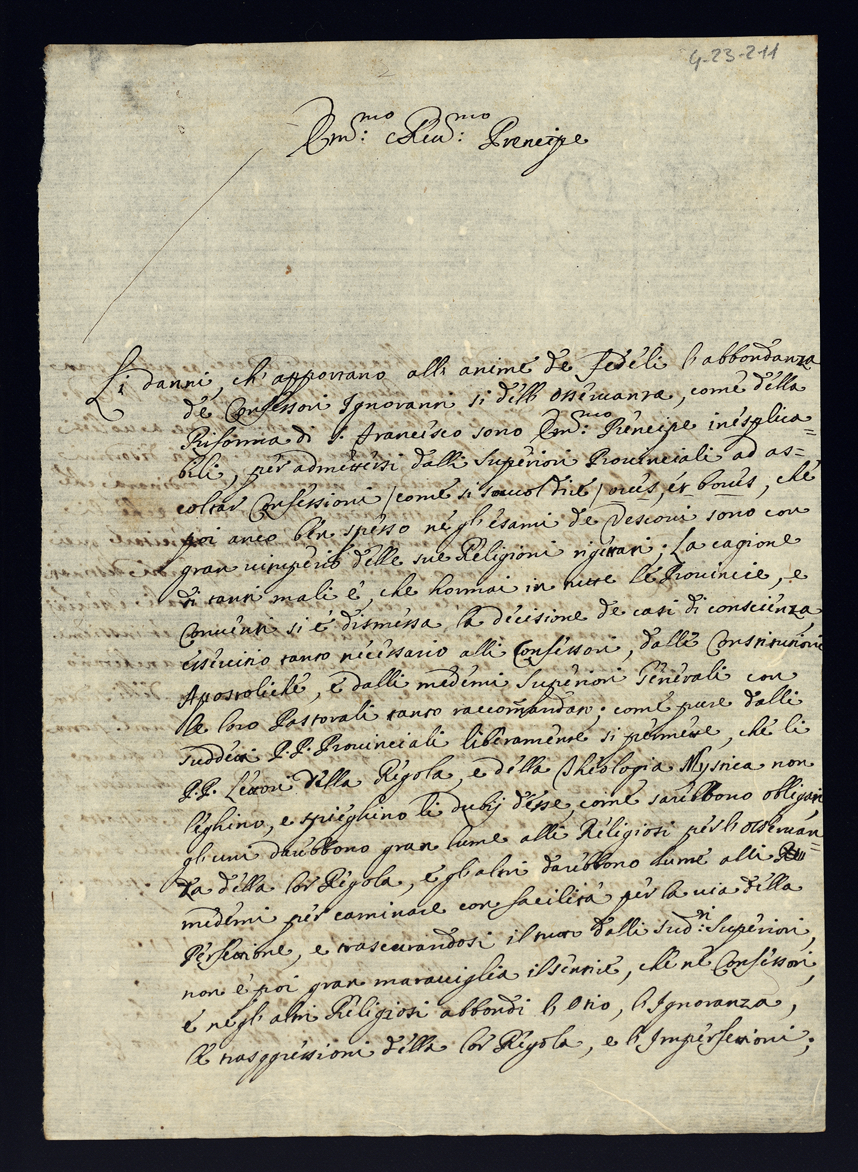 4-23-211
Em:mo e Reu:mo Prencipe
Li danni, ch' apportano alli anime de Fedeli l'abbondanza
de Confessori Ignoranti si dell' Osseruanza, come della
Riforma di S. Francesco sono Em:mo Prencipe inesplica=
bili, per admettersi dalli Superiori Prouinciali ad as=
coltar Confessioni / come si suol dire / oues, et boues, che
poi anco ben spesso negl'esami de Vescoui sono con
gran uituperio delle sue Religioni rigettati; La cagione
di tanti mali è, che hormai in tutte le Prouincie, e
Conuenti si è dismessa la decisione de casi di conscienza,
essercitio tanto necessario alli Confessori, dalle Constitutioni
Apostoliche, e dalli medemi Superiori Generali con
le loro Pastorali tanto raccomandato; come pure dalli
suddetti P.P. Prouinciali liberamente si permette, che li
P.P. Lettori della Regola, e della Theologia Mystica non
leghino, e spieghino li dubij d'esse, come sarebbono obligati,
gl'uni darebbono gran lume alli Religiosi per l'osseruan=
za della lor Regola, e gl'altri darebbono lume alli
medemi per caminare con facilità per la uia della
Perfettione, e trascurandosi il tutto dalli sud:ti Superiori,
non è poi gran marauiglia il sentire, che ne Confessori,
e negl'altri Religiosi abbondi l'Otio, l'Ignoranza,
le trasgressioni della lor Regola, e l'Imperfettioni;